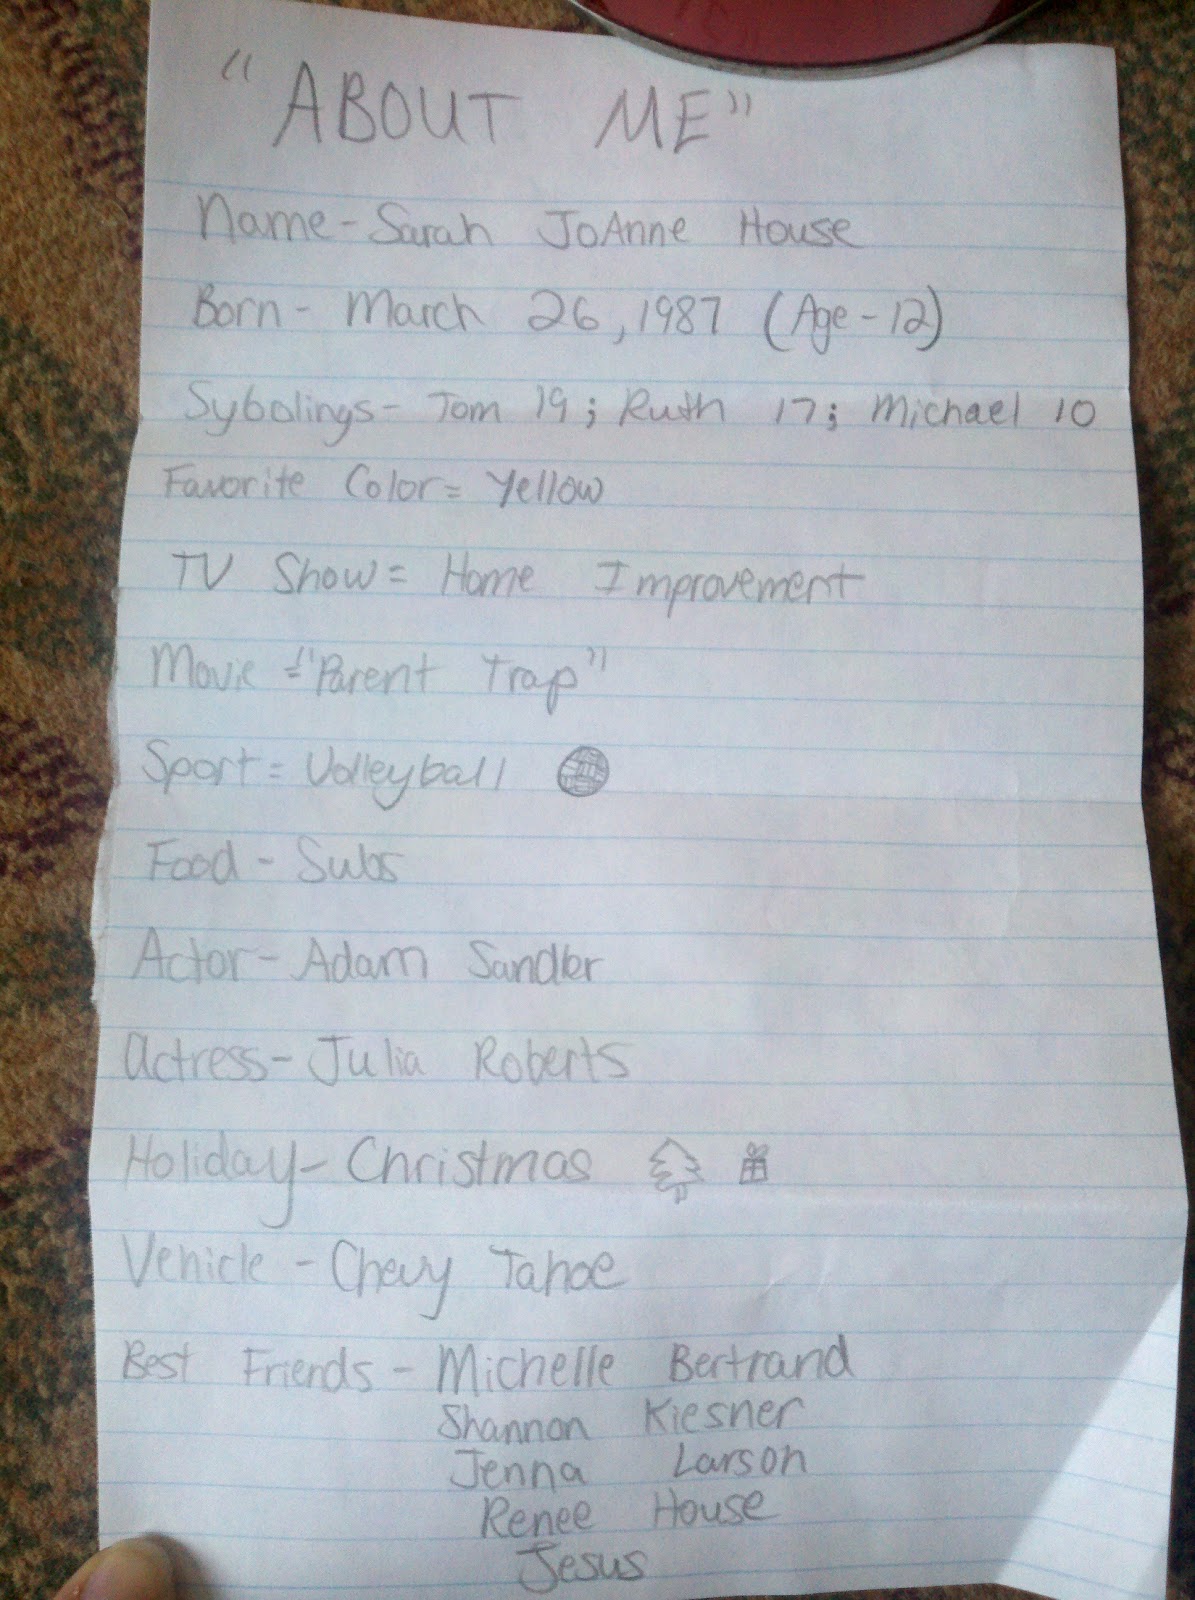 "ABOUT ME"
Name - Sarah JoAnne House
Born - March 26, 1987 (Age - 12)
Sybolings - Tom 19; Ruth 17; Michael 10
Favorite Color = Yellow
TV Show = Home Improvement
Movie = "Parent Trap"
Sport = Volleyball
Food - Subs
Actor - Adam Sandler
Actress - Julia Roberts
Holiday - Christmas
Vehicle - Chevy Tahoe
Best Friends - Michelle Bertrand
Shannon Kiesner
Jenna Larson
Renee House
Jesus